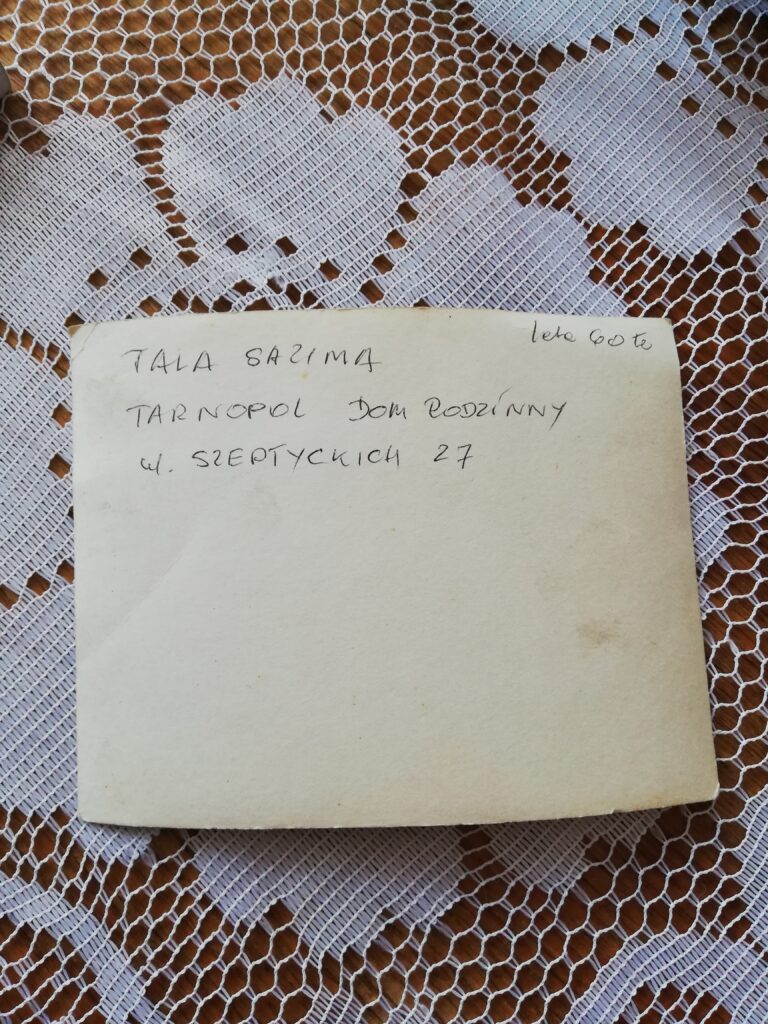 lata 60 te
TALA SAZIMA
TARNOPOL DOM RODZINNY
ul. SZEPTYCKICH 27